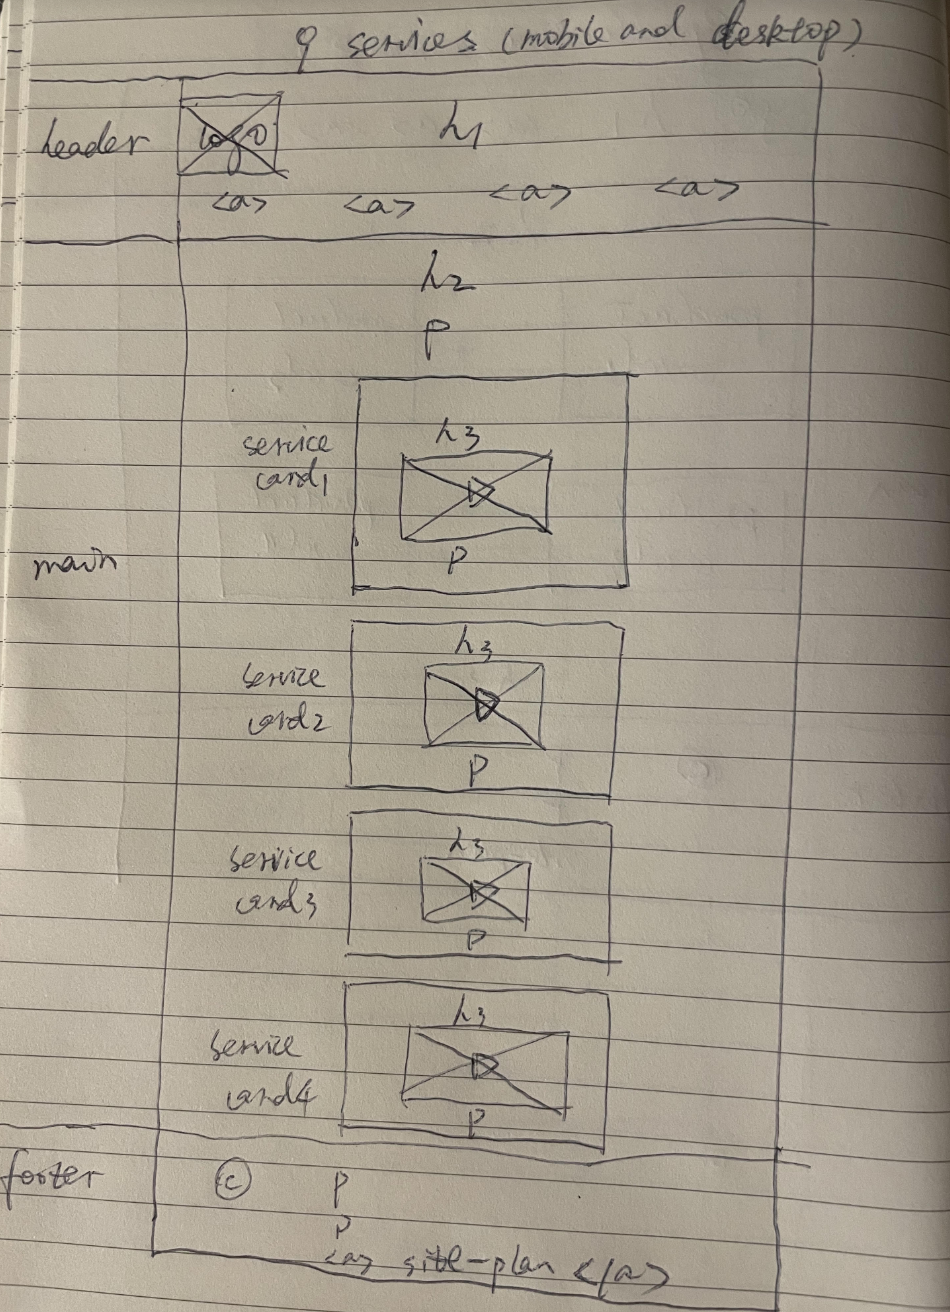 9 services (mobile and desktop)
header logo h1
<a> <a> <a> <a>
h2
P
service
card1
h3
P
main
service
card2
h3
P
service
card3
h3
P
service
card4
h3
P
footer © P
P
<a> site-plan </a>